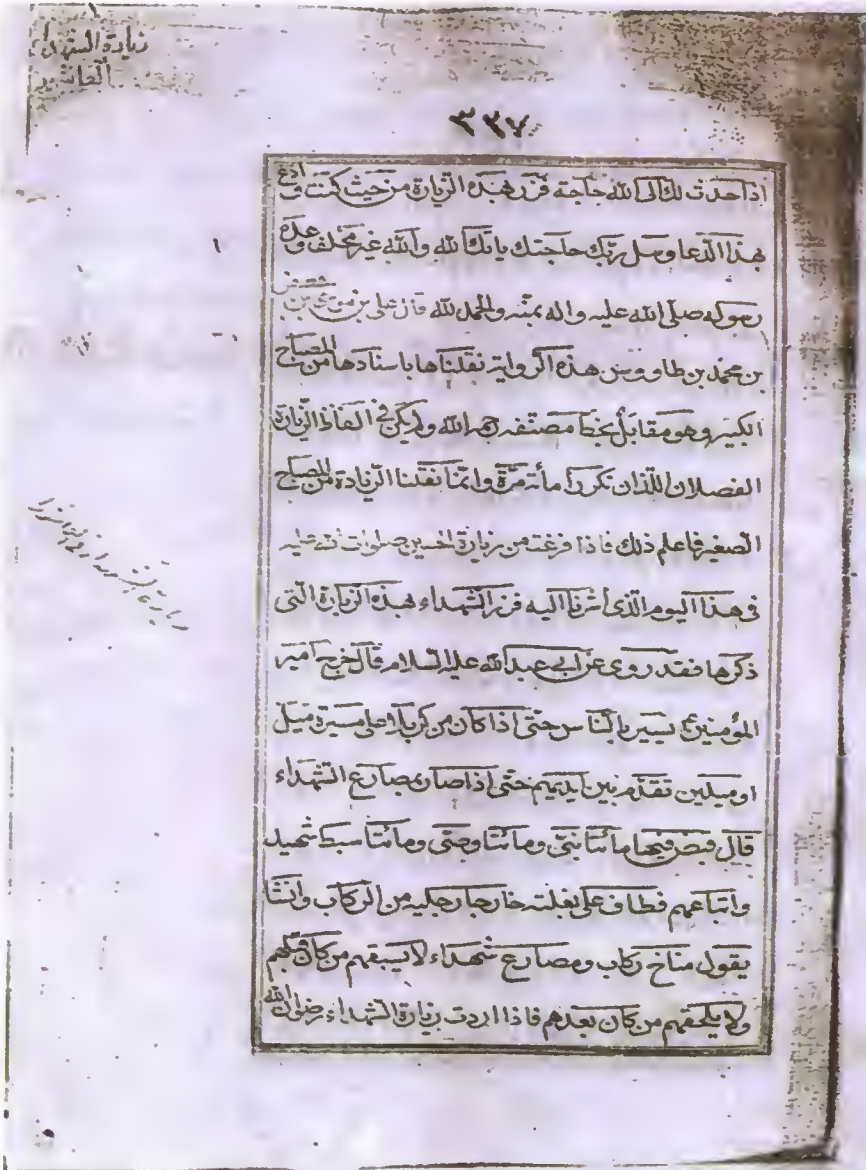 زيارة الشهداء
العاشر
٣٣٧
اذا حدث لك الى الله حاجته فزر بهذه الزيارة من حيث كنت وادع
بهذا الدعا وسل ربك حاجتك ياتك الله والله غير مخلف وعده
رسوله صلى الله عليه واله بمنه والحمد لله قال علي بن موسى بن جعفر
بن محمد بن طاووس هذه الرواية نقلناها باسنادها من المصباح
الكبير وهو مقابل بخط مصنفه رحمه الله ولم يكن في الفاظ الزيارة
الفصلان اللذان تكررا مأته مرة وانما نقلنا الزيادة من المصباح
الصغير فاعلم ذلك فاذا فرغت من زيارة الحسين صلوات الله عليه
في هذا اليوم الذي اشرنا اليه فزر الشهداء بهذه الزيارة التي
ذكرها فقد روى عن ابي عبد الله عليه السلام قال خرج امير
المؤمنين ع يسير بالناس حتى اذا كان من كربلا على مسيرة ميل
او ميلين تقدم بين ايديهم حتى اذا صار بمصارع الشهداء
قال قبض فيها مائتا نبي ومائتا وصي ومائتا سبط شهيد
واتباعهم فطاف على بغلته خارجا رجليه من الركاب وانشا
يقول مناخ ركاب ومصارع شهداء لا يسبقهم من كان قبلهم
ولا يلحقهم من كان بعدهم فاذا اردت زيارة الشهداء رضوان الله